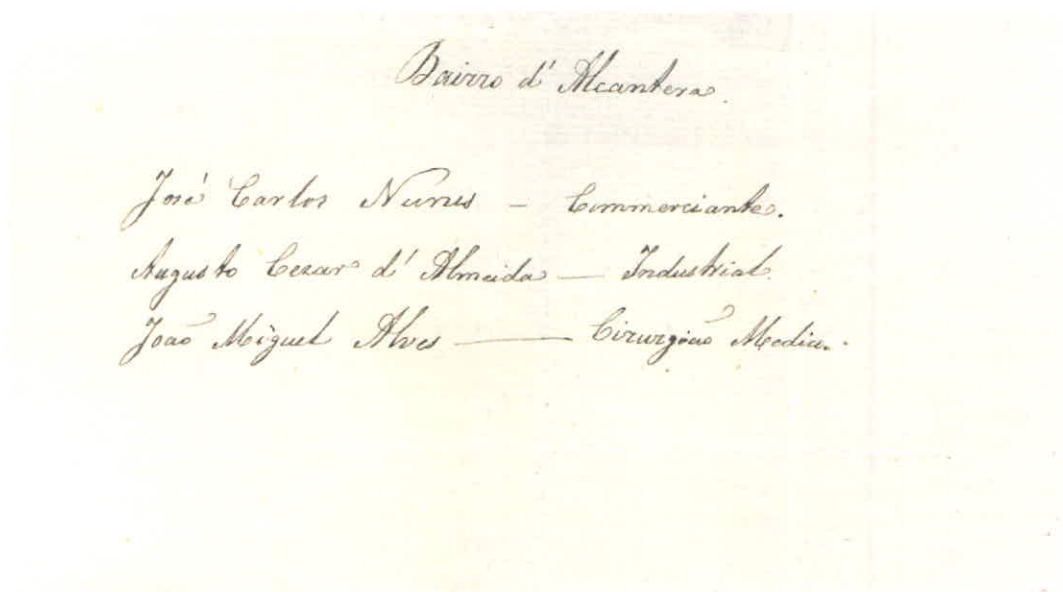 Bairro d' Alcantera.
José Carlos Nunes – Commerciante.
Augusto Cezar d' Almeida — Industrial.
João Miguel Alves —— Cirurgião Medico.